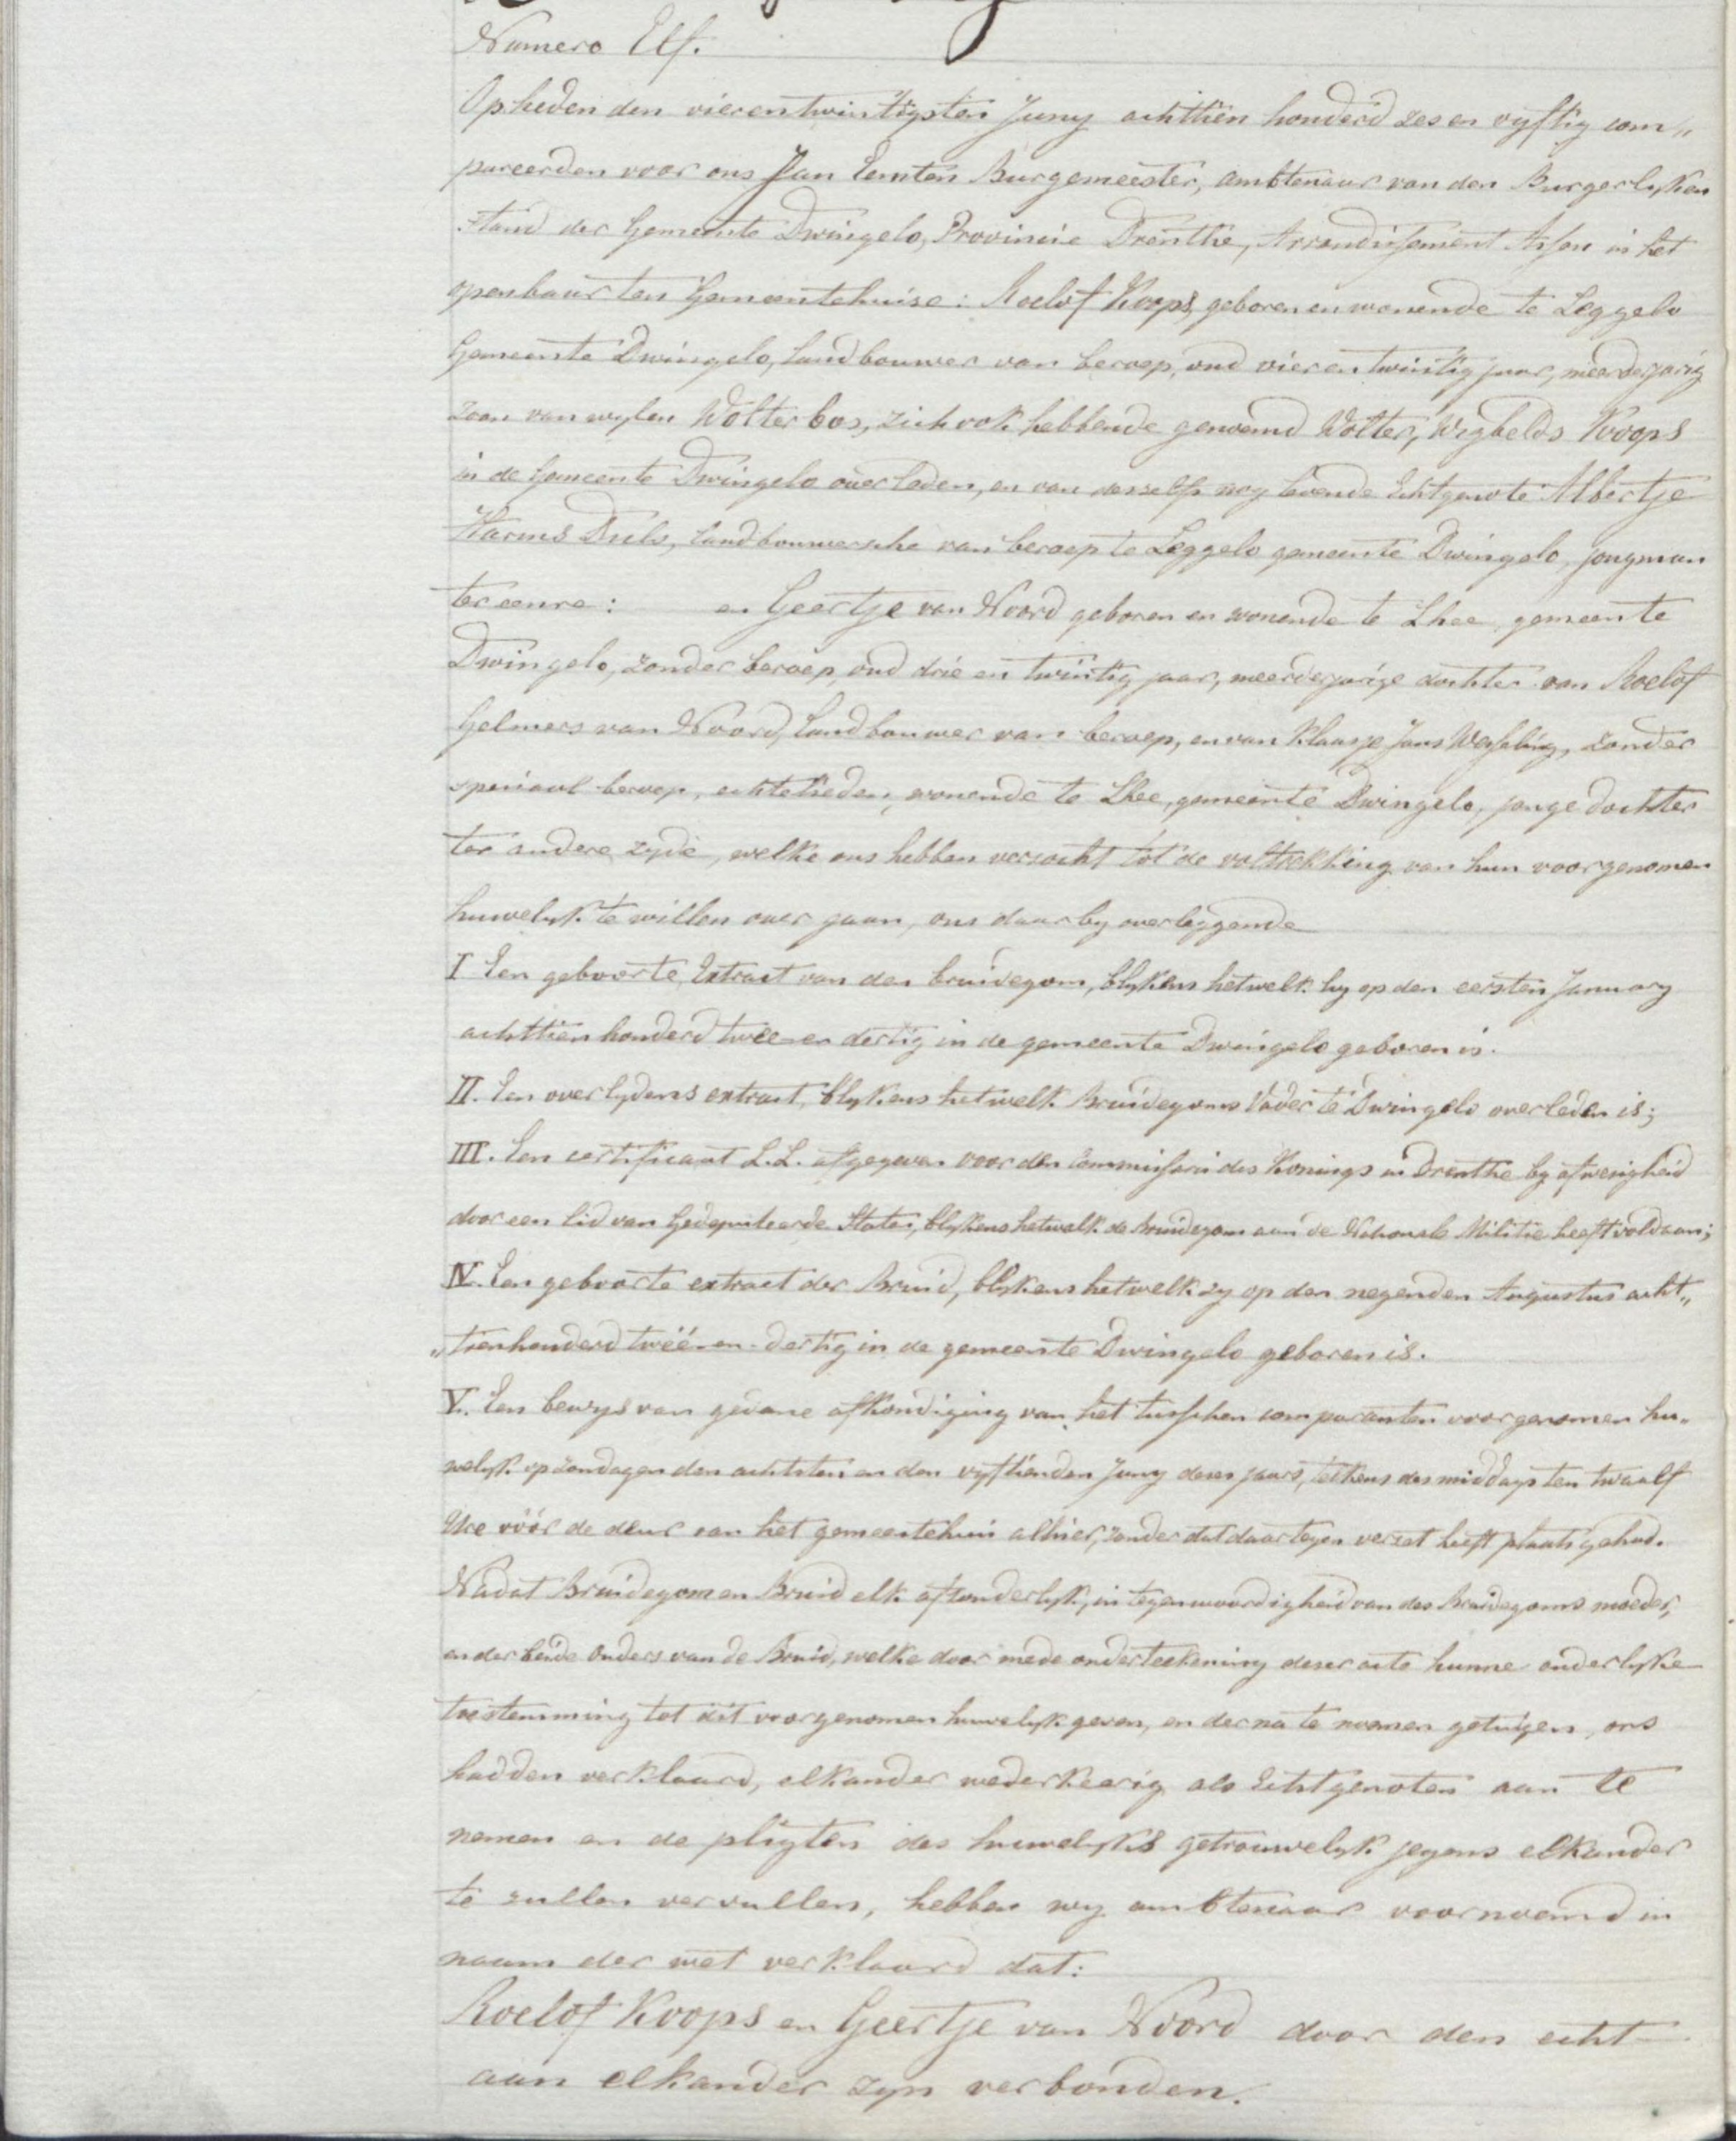 Numero Elf.
Op heden den vierentwintigsten Juny achttien honderd zes en vyftig com„
pareerden voor ons Jan Bernten Burgemeester, ambtenaar van den Burgerlyken
stand der Gemeente Dwingelo, Provincie Drenthe, Arrondissement Assen in het
openbaar ten Gemeentehuise: Roelof Koops, geboren en wonende te Leggelo
Gemeente Dwingelo, landbouwer van beroep, oud vier en twintig jaar, meerderjarig
zoon van wylen Wolter bos, zich ook hebbende genoemd Wolter, Wigbelds Koops
in de Gemeente Dwingelo overleden, en van deszelfs nog levende Echtgenote Albertje
Harms Duls, landbouwersche van beroep te Leggelo gemeente Dwingelo, jongman
ter eenre: en Geertje van Noord geboren en wonende te Lhee, gemeente
Dwingelo, zonder beroep, oud drie en twintig jaar, meerderjarige dochter van Roelof
Gelmers van Noord, landbouwer van beroep, en van Klaasje Jans Wesseling, zonder
speciaal beroep, echtelieden, wonende te Lhee, gemeente Dwingelo, jonge dochter
ter andere zyde, welke ons hebben verzocht tot de voltrekking van hun voorgenomen
huwelyk te willen over gaan, ons daarby overleggende
I Een geboorte Extract van den bruidegom, blykens hetwelk hy op den eersten January
achttien honderd twee en dertig in de gemeente Dwingelo geboren is.
II. Een overlydens extract, blykens hetwelk Bruidegoms Vader te Dwingelo overleden is;
III. Een certificaat L.L. afgegeven voor den Commissaris des Konings in Drenthe by afwezigheid
door een lid van Gedeputeerde Staten, blykens hetwelk de bruidegom aan de Nationale Militie heeft voldaan;
IV. Een geboorte extract der Bruid, blykens hetwelk zy op den negenden Augustus acht„
„tienhonderd twéé-en-dertig in de gemeente Dwingelo geboren is.
V. Een bewys van gedane afkondiging van het tusschen comparanten voorgenomen hu„
welyk op zondagen den achtsten en den vyftienden Juny dezes jaars, telkens des middags ten twaalf
Ure vóór de deur van het gemeentehuis alhier, zonder dat daartegen verzet heeft plaats gehad.
Nadat Bruidegom en Bruid elk afzonderlyk, in tegenwoordigheid van des Bruidegoms moeder,
en der beide Ouders van de Bruid, welke door mede onderteekening dezer acte hunne ouderlyke
toestemming tot dit voorgenomen huwelyk geven, en der na te noemen getuigen, ons
hadden verklaard, elkander wederkeerig als Echtgenoten aan te
nemen en de pligten des huwelyks getrouwelyk jegens elkander
te zullen vervullen, hebben wy ambtenaar voornoemd in
naam der wet verklaard dat:
Roelof Koops en Geertje van Noord door den echt
aan elkander zyn verbonden.